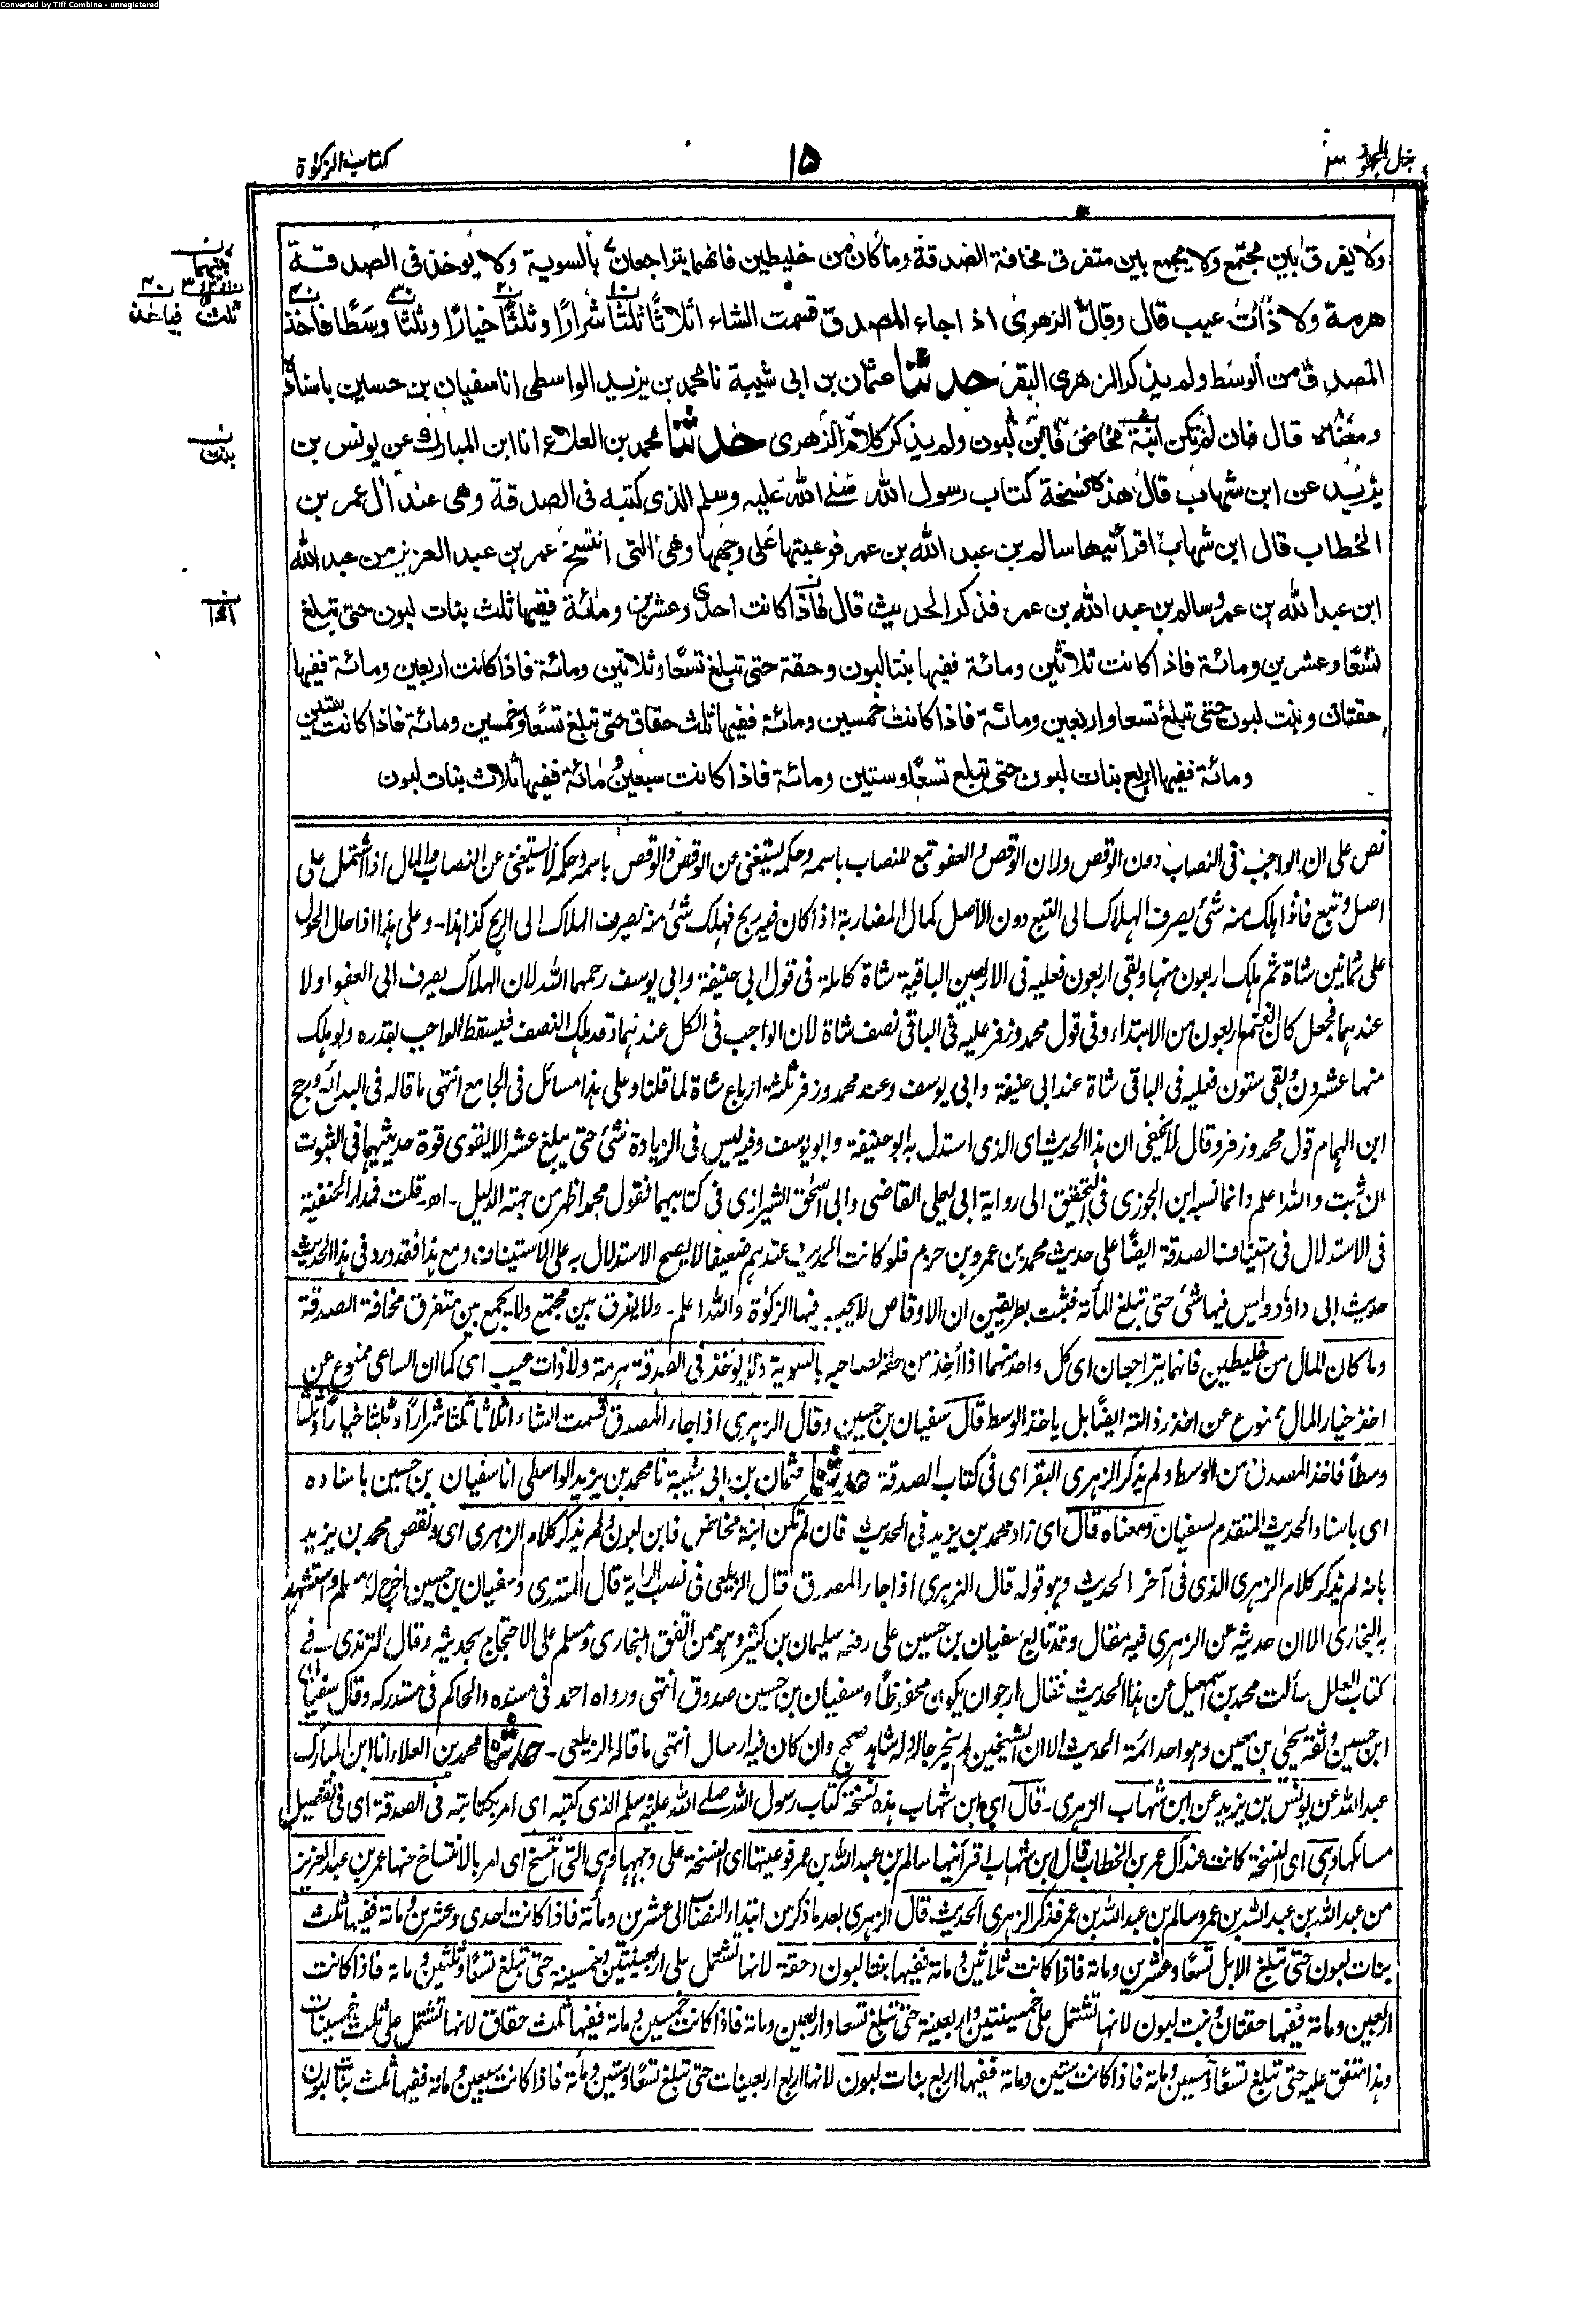 Converted by Tiff Combine - unregistered
بذل المجهود ٣
١٥
كتاب الزكوٰة
ولا يفرق بين مجتمع ولا يجمع بين متفرق مخافة الصدقة وما كان من خليطين فانهما يتراجعان بالسوية ولا يوخذ فى الصدقة
هرمة ولا ذات عيب قال وقال الزهرى اذا جاء المصدق قسمت الشاء اثلاثًا ثلثًا شرارًا وثلثًا خيارًا وثلثًا وسطًا فاخذ
المصدق من الوسط ولم يذكر الزهرى البقر حدثنا عثمان بن ابى شيبة نا محمد بن يزيد الواسطى انا سفيان بن حسين باسناده
ومعناه قال فان لم تكن ابنة مخاض فابن لبون ولم يذكر كلام الزهرى حدثنا محمد بن العلاء انا ابن المبارك عن يونس بن
يزيد عن ابن شهاب قال هذه نسخة كتاب رسول الله صلى الله عليه وسلم الذى كتبه فى الصدقة وهى عند آل عمر بن
الخطاب قال ابن شهاب اقرأنيها سالم بن عبد الله بن عمر فوعيتها على وجهها وهى التى انتسخ عمر بن عبد العزيز من عبد الله
ابن عبد الله بن عمر وسالم بن عبد الله بن عمر فذكر الحديث قال فاذا كانت احدى وعشرين ومائة ففيها ثلث بنات لبون حتى تبلغ
تسعًا وعشرين ومائة فاذا كانت ثلاثين ومائة ففيها بنتا لبون وحقة حتى تبلغ تسعًا وثلاثين ومائة فاذا كانت اربعين ومائة ففيها
حقتان وبنت لبون حتى تبلغ تسعا واربعين ومائة فاذا كانت خمسين ومائة ففيها ثلث حقاق حتى تبلغ تسعًا وخمسين ومائة فاذا كانت ستين
ومائة ففيها اربع بنات لبون حتى تبلغ تسعًا وستين ومائة فاذا كانت سبعين ومائة ففيها ثلاث بنات لبون
نص على ان الواجب فى النصاب دون الوقص ولان الوقص والعفو تبع للنصاب باسمه وحكمه يستغنى عن الوقص والوقص باسمه وحكمه لا يستغنى عن النصاب والمال اذا اشتمل على
اصل وتبع فاذا هلك منه شئ يصرف الهلاك الى التبع دون الاصل كمال المضاربة اذا كان فيه ربح فهلك شئ منه يصرف الهلاك الى الربح كذا هذا۔ وعلى هذا اذا حال الحول
على ثمانين شاة ثم هلك اربعون منها وبقى اربعون فعليه فى الاربعين الباقية شاة كاملة فى قول ابى حنيفة وابى يوسف رحمهما الله لان الهلاك يصرف الى العفو اولا
عندهما فجعل كان الغنم اربعون من الابتداء وفى قول محمد وزفر عليه فى الباقى نصف شاة لان الواجب فى الكل عندهما وقد هلك النصف فيسقط الواجب بقدره ولو هلك
منها عشرون وبقى ستون فعليه فى الباقى شاة عند ابى حنيفة وابى يوسف وعند محمد وزفر ثلثة ارباع شاة لما قلنا وعلى هذا مسائل فى الجامع انتهى ما قاله فى البدائع ورجح
ابن الهمام قول محمد وزفر وقال لا يخفى ان هذا الحديث اى الذى استدل به ابو حنيفة وابو يوسف وفيه ليس فى الزيادة شئ حتى يبلغ عشرا لا يقوى قوة حديثيهما فى الثبوت
ان ثبت والله اعلم وانما نسبه ابن الجوزى فى التحقيق الى رواية ابى يعلى القاضى وابى اسحٰق الشيرازى فى كتابيهما فقول محمد اظهر من جهة الدليل۔ اھ۔ قلت فمدار الحنفية
فى الاستدلال فى استيناف الصدقة ايضًا على حديث محمد بن عمرو بن حزم فلو كانت الحديث عندهم ضعيفا لا يصح الاستدلال به على الاستيناف ومع هذا فقد ورد فى هذا الحديث
حديث ابى داؤد وليس فيها شئ حتى تبلغ المأة فثبت بطريقين ان الاوقاص لا يجب فيها الزكوٰة والله اعلم۔ ولا يفرق بين مجتمع ولا يجمع بين متفرق مخافة الصدقة
وما كان المال من خليطين فانهما يتراجعان اى كل واحد منهما اذا أخذ من حقه لصاحبه بالسوية ولا يؤخذ فى الصدقة هرمة ولا ذات عيب اى كما ان الساعى ممنوع عن
اخذ خيار المال ممنوع عن اخذ رذالته ايضًا بل ياخذ الوسط قال سفيان بن حسين وقال الزهرى اذا جاء المصدق قسمت الشاء اثلاثا ثلثا شرارًا وثلثا خيارًا وثلثا
وسطًا فاخذ المصدق من الوسط ولم يذكر الزهرى البقر اى فى كتاب الصدقة حدثنا عثمان بن ابى شيبة نا محمد بن يزيد الواسطى انا سفيان بن حسين باسناده
اى باسناد الحديث المتقدم لسفيان ومعناه قال اى زاد محمد بن يزيد فى الحديث فان لم تكن ابنة مخاض فابن لبون ولم يذكر كلام الزهرى اى ونقص محمد بن يزيد
بانه لم يذكر كلام الزهرى الذى فى آخر الحديث وهو قوله قال الزهرى اذا جاء المصدق قال الزيلعى فى نصب الراية قال المنذرى وسفيان بن حسين اخرج له مسلم واستشهد
به البخارى الا ان حديثه عن الزهرى فيه مقال وقد تابع سفيان بن حسين على رفعه سليمان بن كثير وهو ممن اتفق البخارى ومسلم على الاحتجاج بحديثه وقال الترمذى۔ فى
كتاب العلل سألت محمد بن اسمٰعيل عن هذا الحديث فقال ارجو ان يكون محفوظًا وسفيان بن حسين صدوق انتهى ورواه احمد فى مسنده والحاكم فى مستدركه وقال سفيان
ابن حسين وثقه يحيى بن معين وهو احد ائمة الحديث الا ان الشيخين لم يخرجا له وله شاهد صحيح وان كان فيه ارسال انتهى ما قاله الزيلعى۔ حدثنا محمد بن العلاء انا ابن المبارك
عبد الله عن يونس بن يزيد عن ابن شهاب الزهرى۔ قال اى ابن شهاب هذه نسخة كتاب رسول الله صلے الله عليه وسلم الذى كتبه اى امر بكتابته فى الصدقة اى فى تفصيل
مسائلها وهى اى النسخة كانت عند آل عمر بن الخطاب قال ابن شهاب اقرأنيها سالم بن عبد الله بن عمر فوعيتها اى النسخة على وجهها وهى التى انتسخ اى امر بالانتساخ منها عمر بن عبد العزيز
من عبد الله بن عبد الله بن عمر وسالم بن عبد الله بن عمر فذكر الزهرى الحديث قال الزهرى بعد ما ذكر من ابتداء النصاب الى عشرين ومأة فاذا كانت احدى وعشرين ومأة ففيها ثلث
بنات لبون حتى تبلغ الابل تسعًا وعشرين ومأة فاذا كانت ثلاثين ومأة ففيها بنتا لبون وحقة لانها تشتمل على اربعينيتين وخمسينة حتى تبلغ تسعًا وثلثين ومأة فاذا كانت
اربعين ومأة ففيها حقتان وبنت لبون لانها تشتمل على خمسينتين واربعينة حتى تبلغ تسعا واربعين ومأة فاذا كانت خمسين ومأة ففيها ثلث حقاق لانها تشتمل على ثلث خمسينات
وهذا متفق عليه حتى تبلغ تسعًا وخمسين ومأة فاذا كانت ستين ومأة ففيها اربع بنات لبون لانها اربع اربعينات حتى تبلغ تسعًا وستين ومأة فاذا كانت سبعين ومأة ففيها ثلث بنات لبون